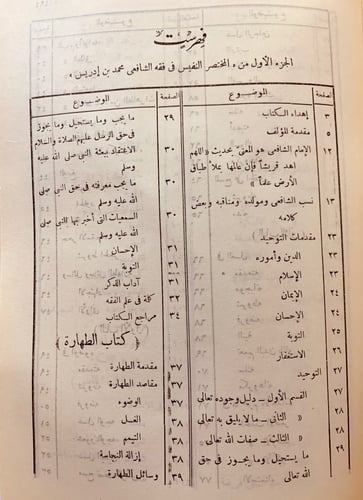 فهرست
الجزء الأول من « المختصر النفيس فى فقه الشافعى محمد بن إدريس »
الصفحة الموضوع
٣ إهداء الكتاب
٥ مقدمة المؤلف
١٢ الإمام الشافعى هو المعنىّ بحديث « اللهم
اهد قريشاً فإن عالمها يملأ طباق
الأرض علماً »
١٣ نسب الشافعى ومولده ومناقبه وبعض
كلامه
٢٣ مقدمات التوحيد
٢٣ الدين وأموره
٢٣ الإسلام
٢٤ الإيمان
٢٤ الإحسان
٢٥ التوبة
٢٦ الاستغفار
٢٧ التوحيد
٢٧ القسم الأول – دليل وجوده تعالى
٢٨ « الثانى – مالا يليق به تعالى
٢٨ « الثالث – صفات الله تعالى
٢٩ ما يستحيل وما يجوز فى حق
الله تعالى
الصفحة الموضوع
٢٩ ما يجب وما يستحيل وما يجوز
فى حق الرسل عليهم الصلاة والسلام
٣٠ الاعتقاد ببعثة النبى صلى الله عليه
وسلم
٣٠ ما يجب معرفته فى حق النبى صلى
الله عليه وسلم
٣٠ السمعيات التى أخبر بها النبى صلى
الله عليه وسلم
٣١ الإحسان
٣١ التوبة
٣١ آداب الذكر
٣٢ كلمة فى علم الفقه
٣٤ مراجع الكتاب
﴿ كتاب الطهارة ﴾
٣٧ مقدمة الطهارة
٣٧ مقاصد الطهارة
٣٧ الوضوء
٣٨ الغسل
٣٨ التيمم
٣٨ إزالة النجاسة
٣٩ وسائل الطهارة